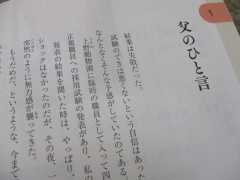 1
父のひと言
結果は失敗だった。
試験のできは悪くないという自信はあった
なんとなくそんな予感がしていたのである。
上野動物園に臨時の職員として入って四
正規職員への採用試験の発表があり、私の
発表の結果を聞いた時は、やっぱり、
ショックはなかったのだが、その夜、一
突然のように無力感が襲ってきた。
もうだめだ、というような、今まで